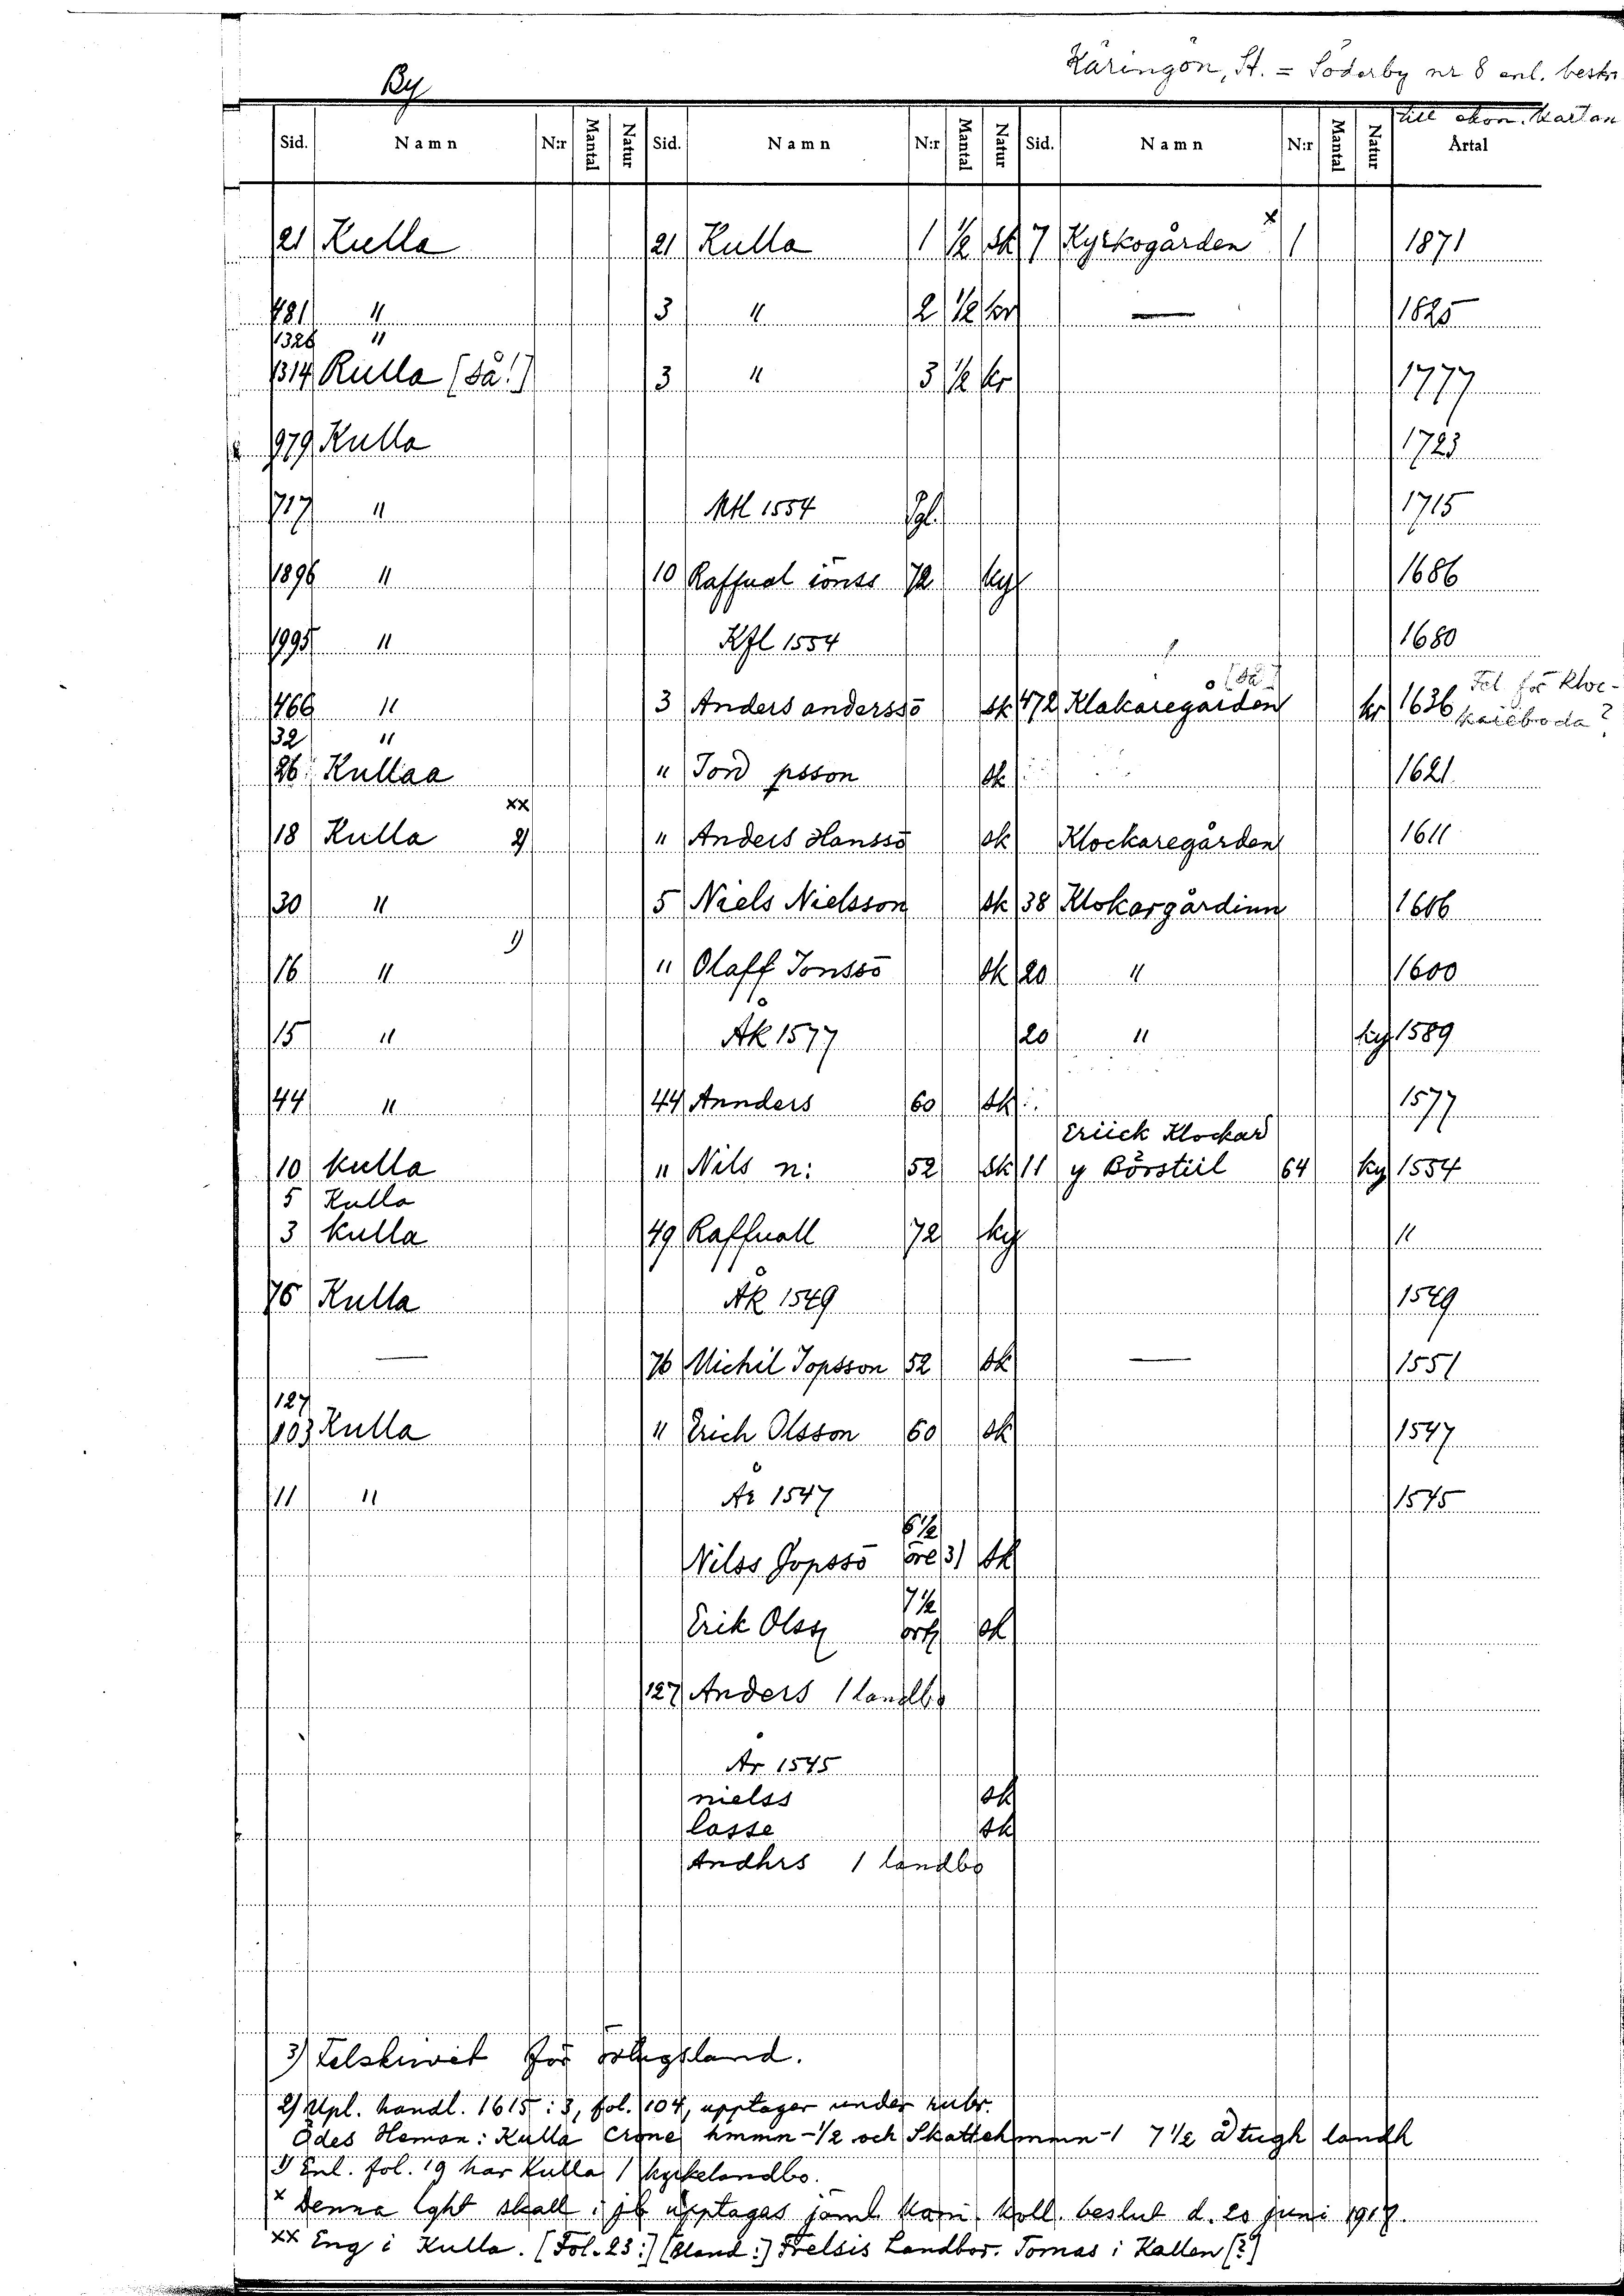 Käringön, St. = Söderby nr 8 enl. beskr.
till ekon. kartan
By
Sid. Namn N:r Mantal Natur Sid. Namn N:r Mantal Natur Sid. Namn N:r Mantal Natur Årtal
21 Kulla 21 Kulla 1 ½ sk 7 Kyrkogården x 1 1871
481 " 3 " 2 ½ kr — 1825
1326 "
1314 Rulla [så!] 3 " 3 ½ kr 1777
979 Kulla 1723
717 " Mtl 1554 Pgl. 1715
1896 " 10 Raffual iönss 72 ky 1686
1995 " Kfl 1554 1680
466 " 3 Anders anderssō sk 472 Klakaregården [så] kr 1636 Fel för Kloc-
karebroda?
32 "
26 Kullaa " Jord psson sk 1621
xx
18 Kulla 2) " Anders Hanssō sk Klockaregården 1611
30 " 5 Niels Nielsson sk 38 Klokargårdinn 1606
1)
16 " " Olaff Jonssō sk 20 " 1600
15 " Åk 1577 20 " ky 1589
44 " 44 Annders 60 sk 1577
Eriick Klockar
10 kulla " Nils n: 52 sk 11 y Börstiil 64 ky 1554
5 Kulla
3 kulla 49 Raffuall 72 ky "
75 Kulla ÅR 1549 1549
— 76 Michil Jopsson 52 sk — 1551
127
103 Kulla " Erich Olsson 60 sk 1547
11 " År 1547 1545
6½
Nilss Jopssō öre 3) sk
7½
Erik Olss örtz sk
127 Anders 1 landbo
År 1545
nielss sk
lasse sk
Andhrs 1 landbo
3) Felskrivet för örtugsland.
2) Upl. handl. 1615:3, fol. 104, upptager under rubr.
Ödes Heman: Kulla Crone hmmn - ½ och Skattehmmn - 1 7½ åtugh landh
1) Enl. fol. 19 har Kulla 1 kyrkelandbo.
x Denna lght skall i jb upptagas jäml. Kam. koll. beslut d. 20 juni 1917.
xx Eng i Kulla. [Fol. 23:] [Bland:] Frelsis Landbor. Tomas i Kallen [?]